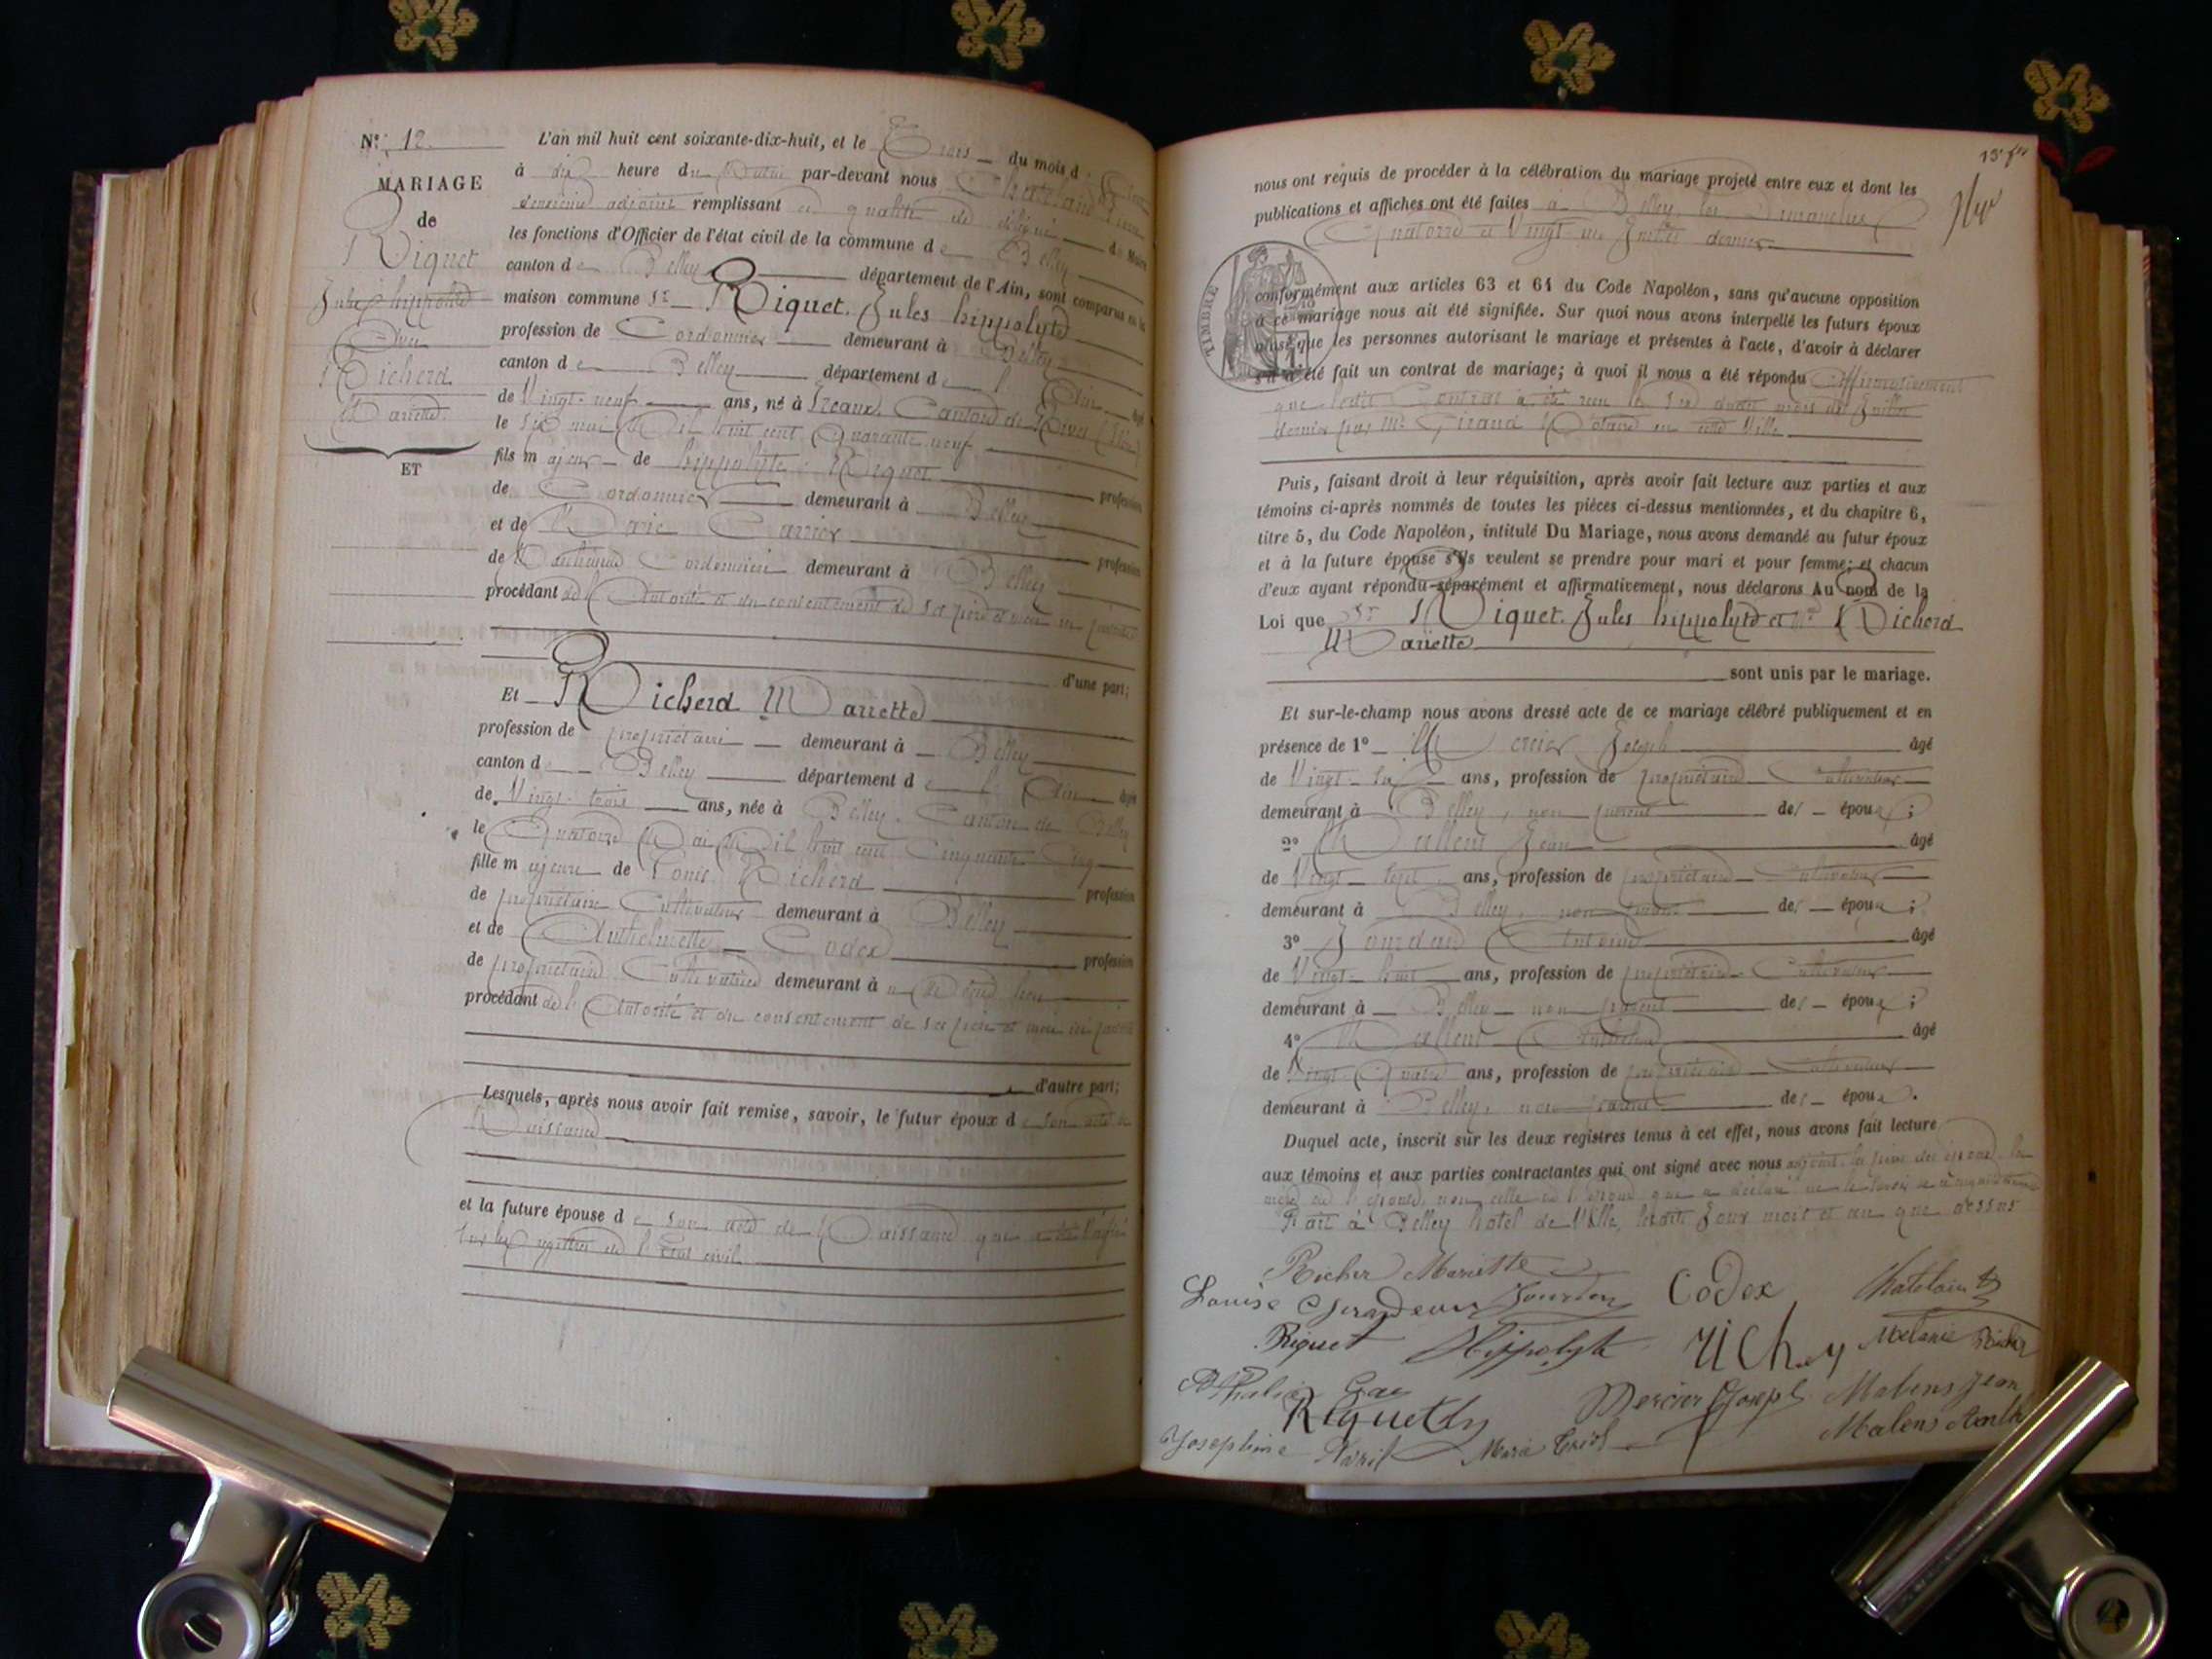 N° 12.
MARIAGE
de
Riquet
Jules hippolyte
Avec
Richerd
Mariette
ET
L'an mil huit cent soixante-dix-huit, et le Trois du mois d
à dix heure du Matin par-devant nous Chatelain
deuxième adjoint remplissant en qualité de délégué du Maire
les fonctions d'Officier de l'état civil de la commune de Belley
canton de Belley département de l'Ain, sont comparus en la
maison commune Sr Riquet. Jules hippolyte
profession de Cordonnier demeurant à Belley
canton de Belley département de l'Ain âgé
de Vingt-neuf ans, né à Canton de
le Six mai Mil huit cent Quarante neuf
fils majeur de hippolyte Riquet profession
de Cordonnier demeurant à Belley
et de Marie Carrier profession
de Cordonnière demeurant à Belley
procédant de l'Autorité et du consentement de ses père et mère ici présents
d'une part;
Et Richerd Mariette
profession de propriétaire demeurant à Belley
canton de Belley département de l'Ain âgé
de Vingt-trois ans, née à Belley. Canton de Belley
le Quatorze Mai Mil huit cent Cinquante Cinq
fille majeure de Louis Richerd profession
de propriétaire Cultivateur demeurant à Belley
et de Anthelmette Codex profession
de propriétaire Cultivatrice demeurant à
procédant de l'Autorité et du consentement de ses père et mère ici présents
d'autre part;
Lesquels, après nous avoir fait remise, savoir, le futur époux de son acte de
Naissance
et la future épouse de son acte de Naissance que
sur les registres de l'Etat civil
nous ont requis de procéder à la célébration du mariage projeté entre eux et dont les
publications et affiches ont été faites à Belley, les Dimanches
Quatorze et Vingt un Juillet dernier
TIMBRE
conformément aux articles 63 et 64 du Code Napoléon, sans qu'aucune opposition
à ce mariage nous ait été signifiée. Sur quoi nous avons interpellé les futurs époux
ainsi que les personnes autorisant le mariage et présentes à l'acte, d'avoir à déclarer
s'il a été fait un contrat de mariage; à quoi il nous a été répondu Affirmativement
que ledit Contrat a été reçu le mois de Juillet
dernier par Me Giraud Notaire en cette Ville
Puis, faisant droit à leur réquisition, après avoir fait lecture aux parties et aux
témoins ci-après nommés de toutes les pièces ci-dessus mentionnées, et du chapitre 6,
titre 5, du Code Napoléon, intitulé Du Mariage, nous avons demandé au futur époux
et à la future épouse s'ils veulent se prendre pour mari et pour femme; et chacun
d'eux ayant répondu séparément et affirmativement, nous déclarons Au nom de la
Loi que Sr Riquet. Jules hippolyte et Richerd
Mariette
sont unis par le mariage.
Et sur-le-champ nous avons dressé acte de ce mariage célébré publiquement et en
présence de 1° Mercier Joseph âgé
de Vingt-six ans, profession de propriétaire Cultivateur
demeurant à Belley, non parent des époux;
2° Mallens Jean âgé
de Vingt-sept ans, profession de propriétaire Cultivateur
demeurant à Belley, non parent des époux;
3° Jourdain Antoine âgé
de Vingt-huit ans, profession de propriétaire Cultivateur
demeurant à Belley non parent des époux;
4° Mallens Anthelme âgé
de Vingt-Quatre ans, profession de propriétaire Cultivateur
demeurant à Belley, non parent des époux.
Duquel acte, inscrit sur les deux registres tenus à cet effet, nous avons fait lecture
aux témoins et aux parties contractantes qui ont signé avec nous adjoint les pères des époux, la
mère de l'épouse, non celle de l'époux qui a déclaré ne le savoir
Fait à Belley hotel de Ville, lesdits Jour mois et an que dessus
Richer Mariette
Louise Jourdan Codex Chatelain
Riquet Hippolyte Mélanie Richer
Riquet Mercier Joseph Malens Jean
Josephine Marie Malens Anth